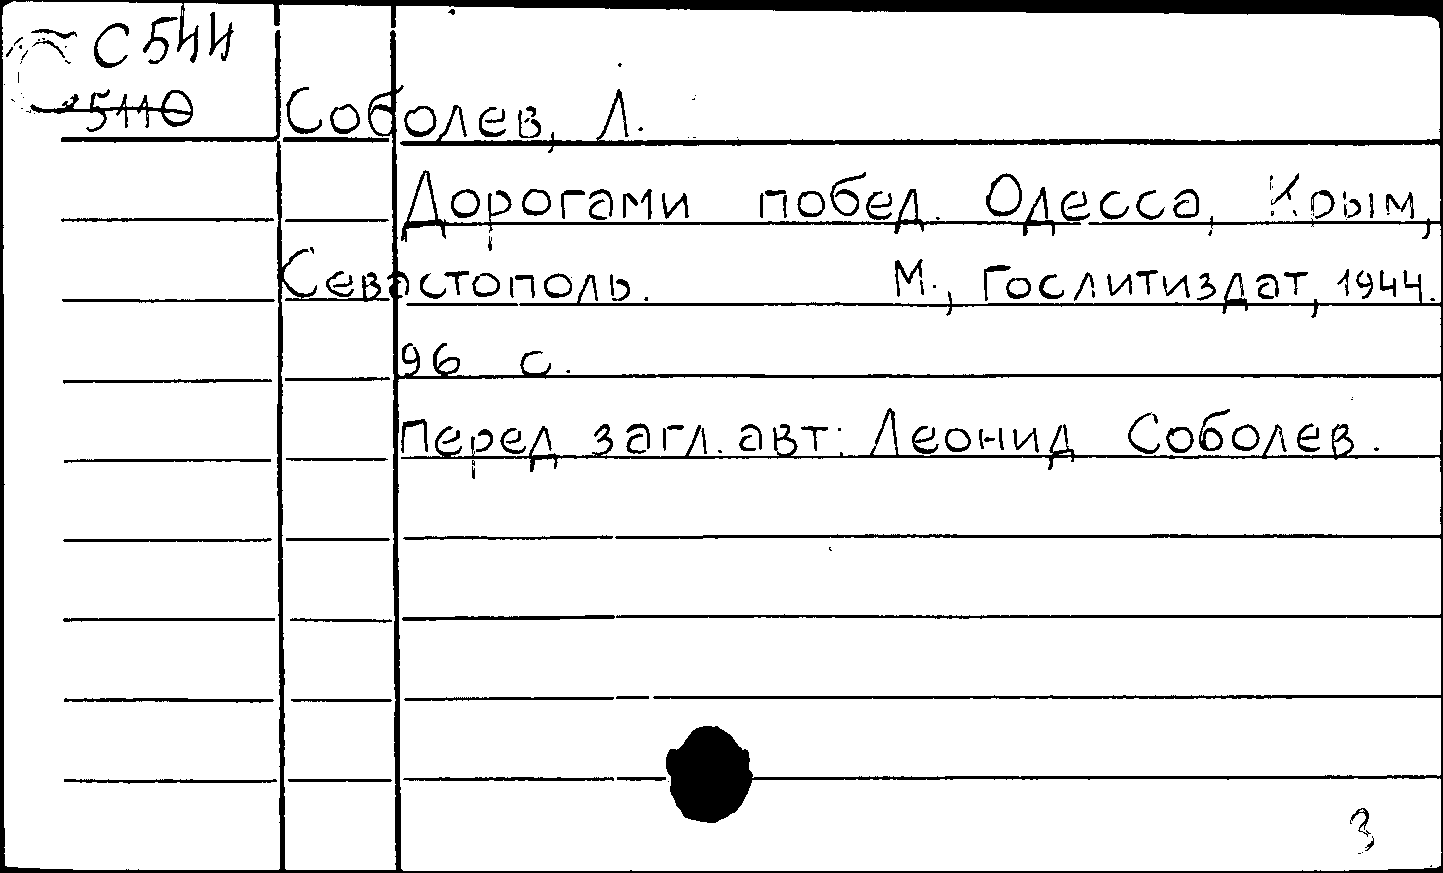 С544
5110
Соболев, Л.
Дорогами побед. Одесса, Крым,
Севастополь. М., Гослитиздат, 1944.
96 с.
Перед загл. авт: Леонид Соболев.
3